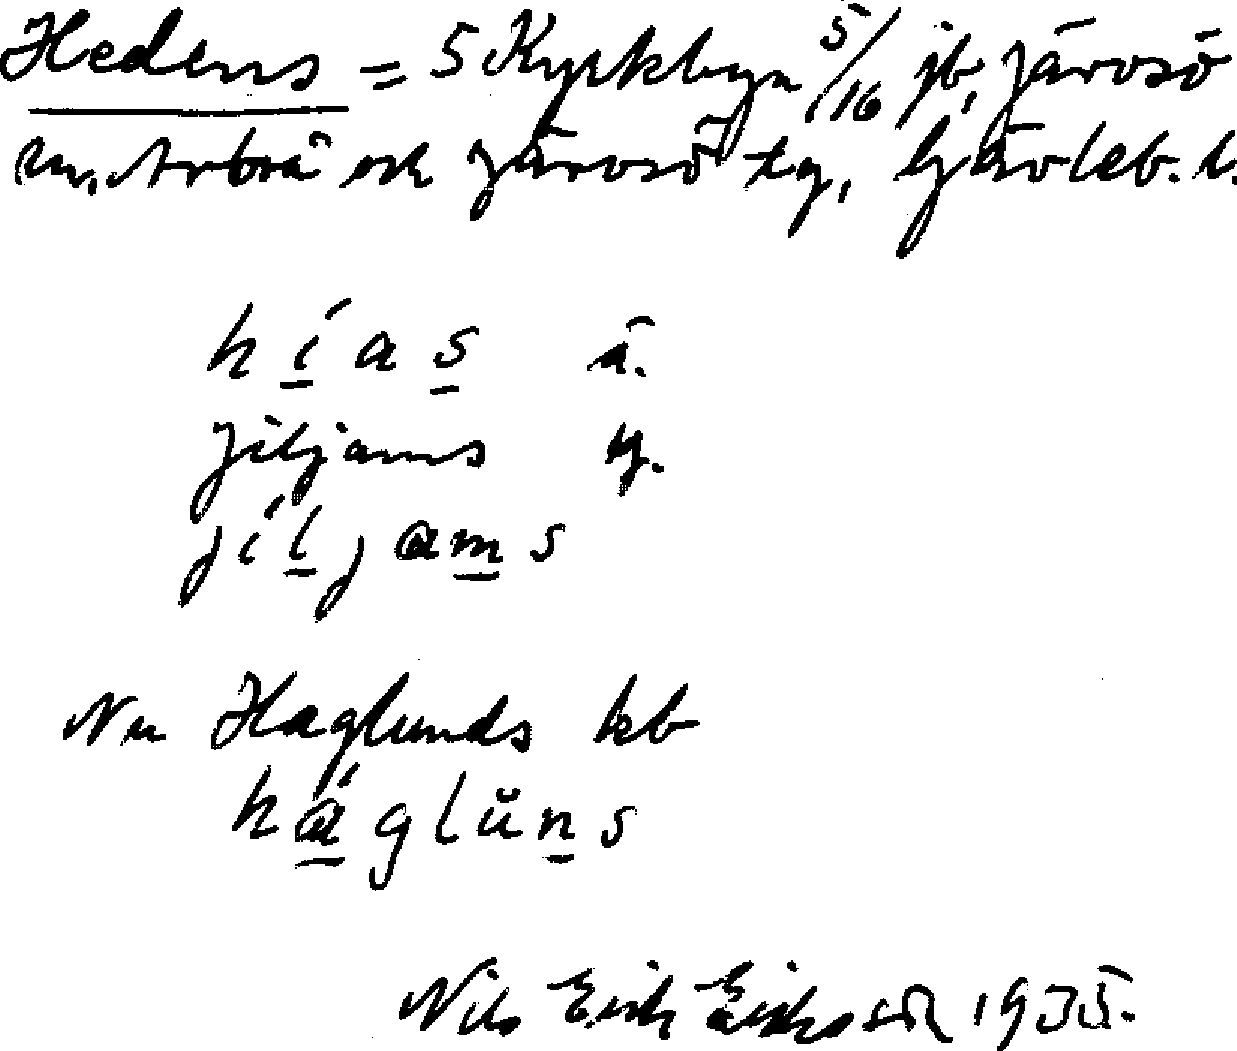 Hedens = 5 Kyrkbyn 5/16 jb, Järvsö
sn, Arbrå och Järvsö tg, Gävleb. l.
hías ä.
Jiljams y.
jíljams
Nu Haglunds kb
háglŭns
Nils Erik Eriksson 1935.